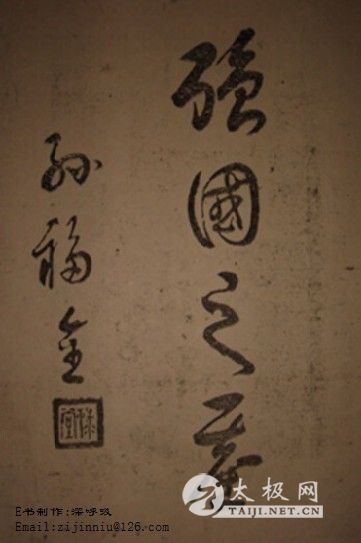 强國之基
孙福全
太极网
TAIJI.NET.CN
E书制作:深呼吸
Email:zijinniu@126.com